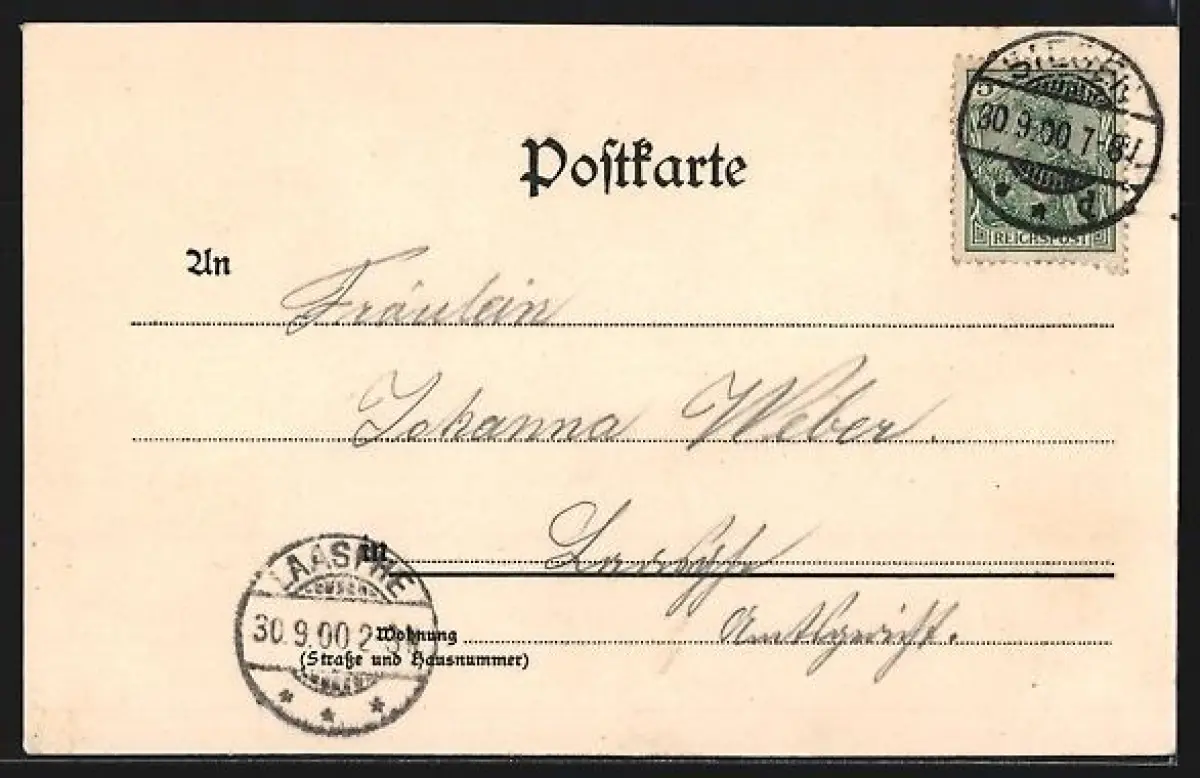 SIEGEN
5
30.9.00.7-8V.
* * d
REICHSPOST
Postkarte
An
Fräulein
Johanna Weber.
in Laasphe
LAASPHE
30.9.00 2-3
* * *
Wohnung Amtsgericht.
(Straße und Hausnummer)